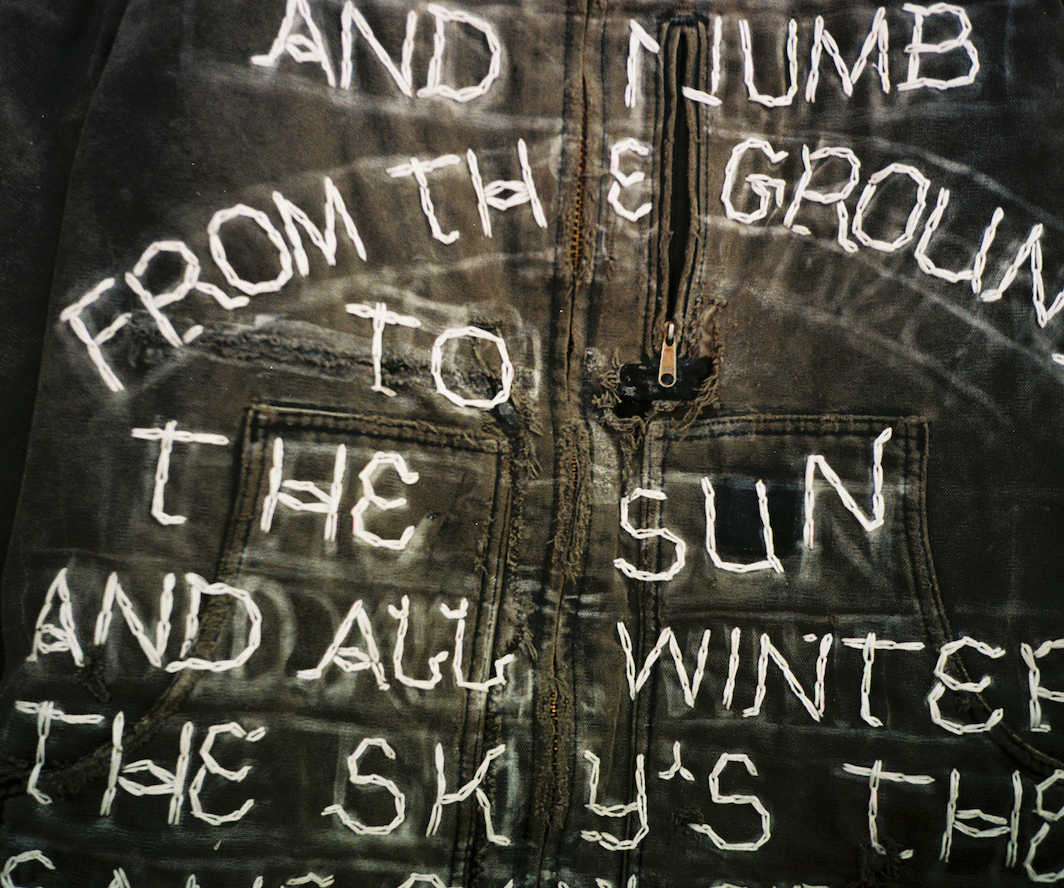 AND NUMB
FROM THE GROUN
TO
THE SUN
AND ALL WINTE
THE SKY'S THE